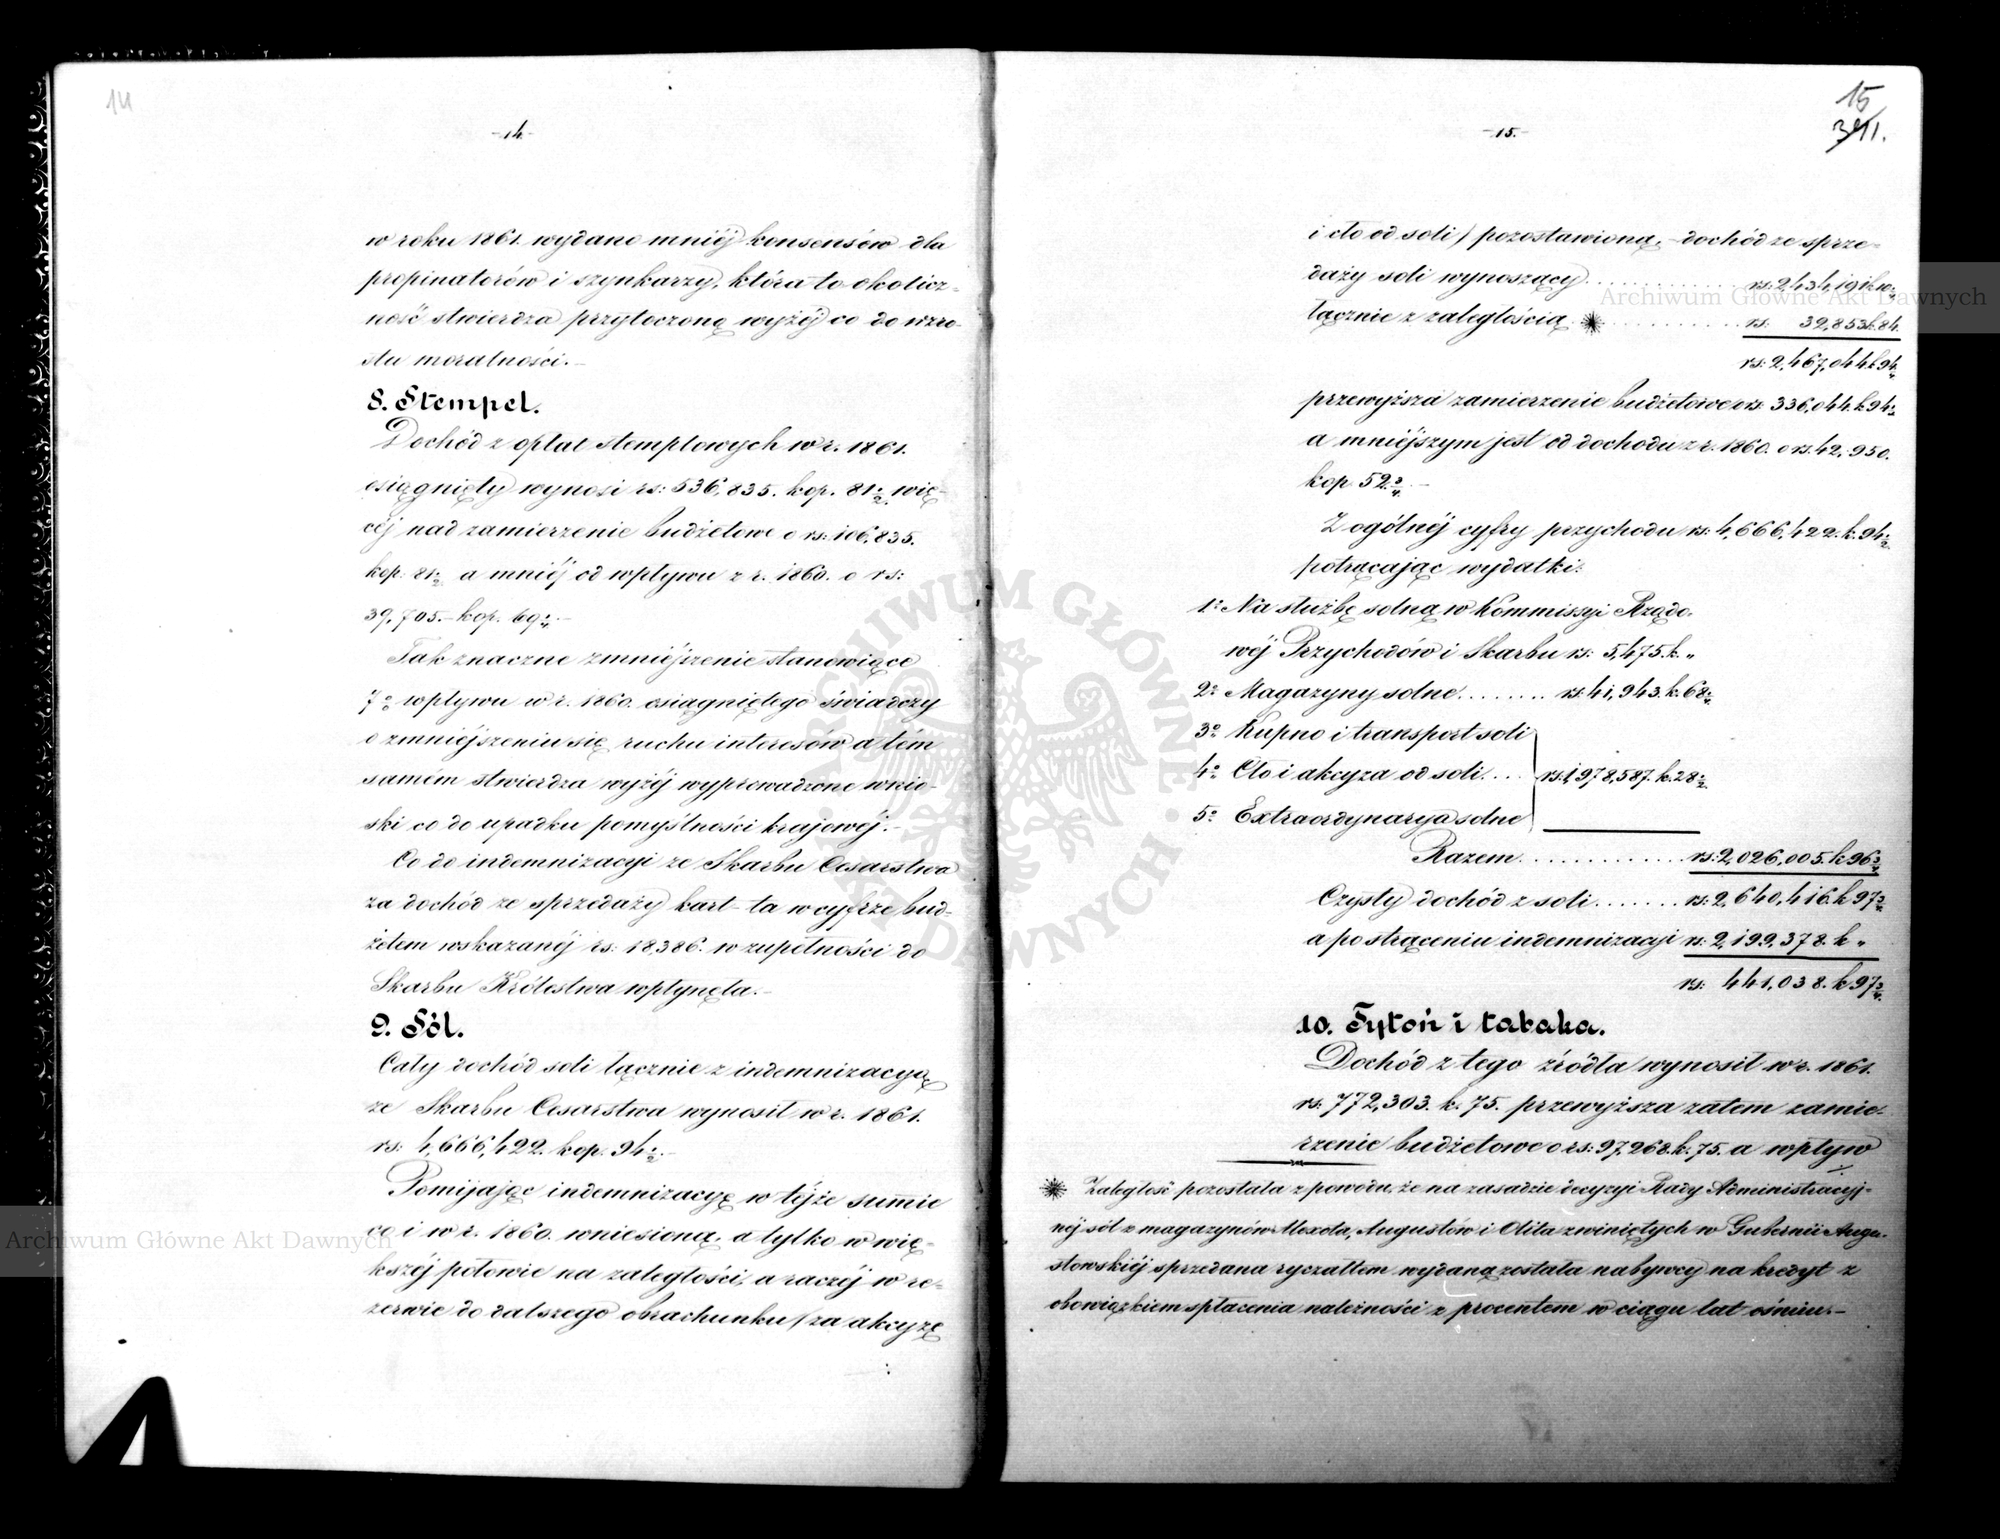 14
-14-
w roku 1861. wydano mniéj konsensów dla
propinatorów i szynkarzy, która to okolicz-
ność stwierdza przytoczoną wyżéj co do wzro-
stu moralności.-
8. Stempel.
Dochód z opłat stemplowych w r. 1861.
osiągnięty wynosi rs: 536,835. kop. 81½ wię-
céj nad zamierzenie budżetowe o rs: 106,835.
kop. 81½ a mniéj od wpływu z r. 1860. o rs:
39,705.- kop. 69
Tak znaczne zmniéjszenie stanowiące
7% wpływu w r. 1860. osiągniętego świadczy
o zmniéjszeniu się ruchu interesów a tém
samém stwierdza wyżéj wyprowadzone wnio-
ski co do upadku pomyślności krajowéj.-
Co do indemnizacyi ze Skarbu Cesarstwa
za dochód ze sprzedaży kart - ta w cyfrze bud-
żetem wskazanéj rs: 18,386. w zupełności do
Skarbu Królestwa wpłynęła.-
9. Sól.
Cały dochód soli łącznie z indemnizacyą
ze Skarbu Cesarstwa wynosił w r. 1861.
rs: 4,666,422. kop. 94½.-
Pomijając indemnizacyę w téjże summie
co i w r. 1860. wniesioną, a tylko w wię-
kszéj połowie na zaległości, a raczéj w re-
zerwie do dalszego obrachunku (za akcyzę
15
391.
-15.-
i cło od soli) pozostawioną, - dochód ze sprze-
daży soli wynoszący . . . . . . . . . . rs: 2,434,191 k 10
łącznie z zaległością * . . . . . . . . . rs: 32,853 k. 84.
rs: 2,467,044 k 94
przewyższa zamierzenie budżetowe o rs: 336,044. k 94½
a mniéjszym jest od dochodu z r. 1860. o rs. 42,950.
kop 52¾.-
Z ogólnéj cyfry przychodu rs: 4,666,422. k. 94½
potrącając wydatki:
1o Na służbę solną w Kommissyi Rządo-
wéj Przychodów i Skarbu rs: 5,475. k. "
2o Magazyny solne . . . . . . . rs. 41,943. k. 68
3o Kupno i transport soli
4o Cło i akcyza od soli . . . rs. 1,978,587. k. 28½
5o Extraordynarya solne
Razem . . . . . . . . . . . . . rs: 2,026,005. k 96¾
Czysty dochód z soli . . . . . . . rs: 2,640,416. k 97¾
a po strąceniu indemnizacyi rs: 2,199,378. k "
rs: 441,038. k 97¾
10. Tytoń i tabaka.
Dochód z tego źródła wynosił w r. 1861.
rs. 772,303. k. 75. przewyższa zatem zamie-
rzenie budżetowe o rs: 97,268. k. 75. a wpływ
* Zaległość pozostała z powodu, że na zasadzie decyzyi Rady Administracyj-
néj sól z magazynów Mexota, Augustów i Olita zwiniętych w Gubernii Augu-
stowskiéj sprzedana ryczałtem wydaną została nabywcy na kredyt z
obowiązkiem spłacenia należności z procentem w ciągu lat ośmiu.-
Archiwum Główne Akt Dawnych
Archiwum Główne Akt Dawnych
ARCHIWUM GŁÓWNE AKT DAWNYCH